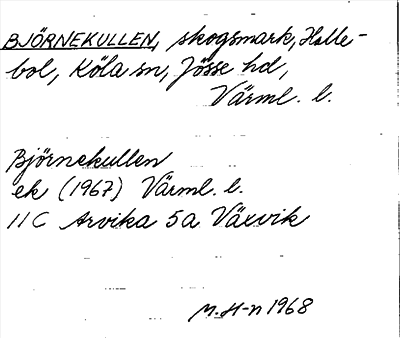 BJÖRNEKULLEN, skogsmark, Holle-
bol, Köla sn, Jösse hd,
Värml. l.
Björnekullen
ek (1967) Värml. l.
11C Arvika 5a Växvik
M. H-n 1968